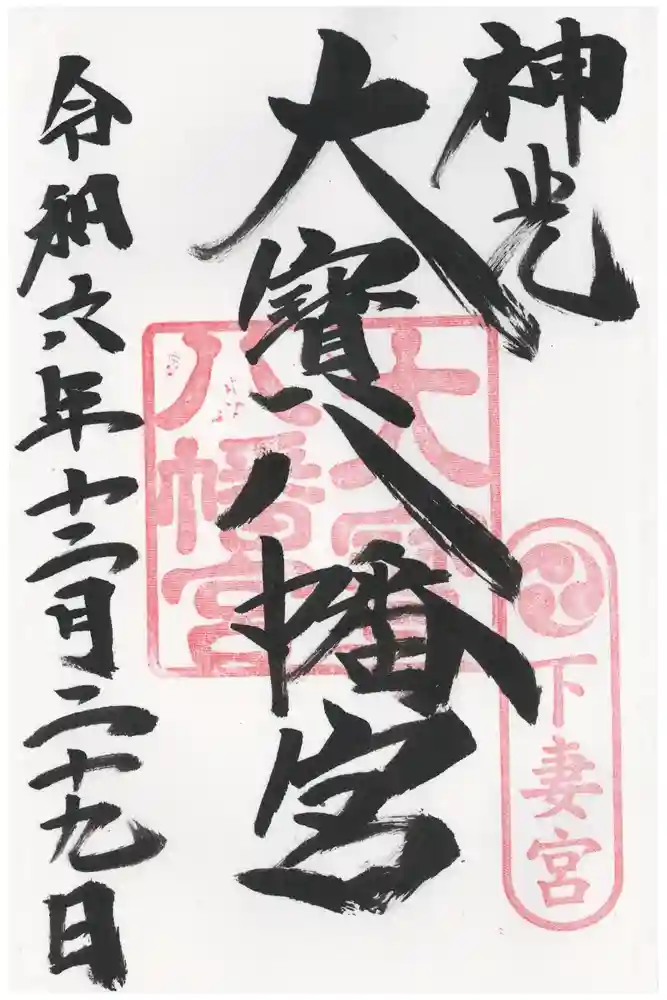 神光
大寳八幡宮
大寳
八幡宮
下妻宮
令和六年十二月二十九日